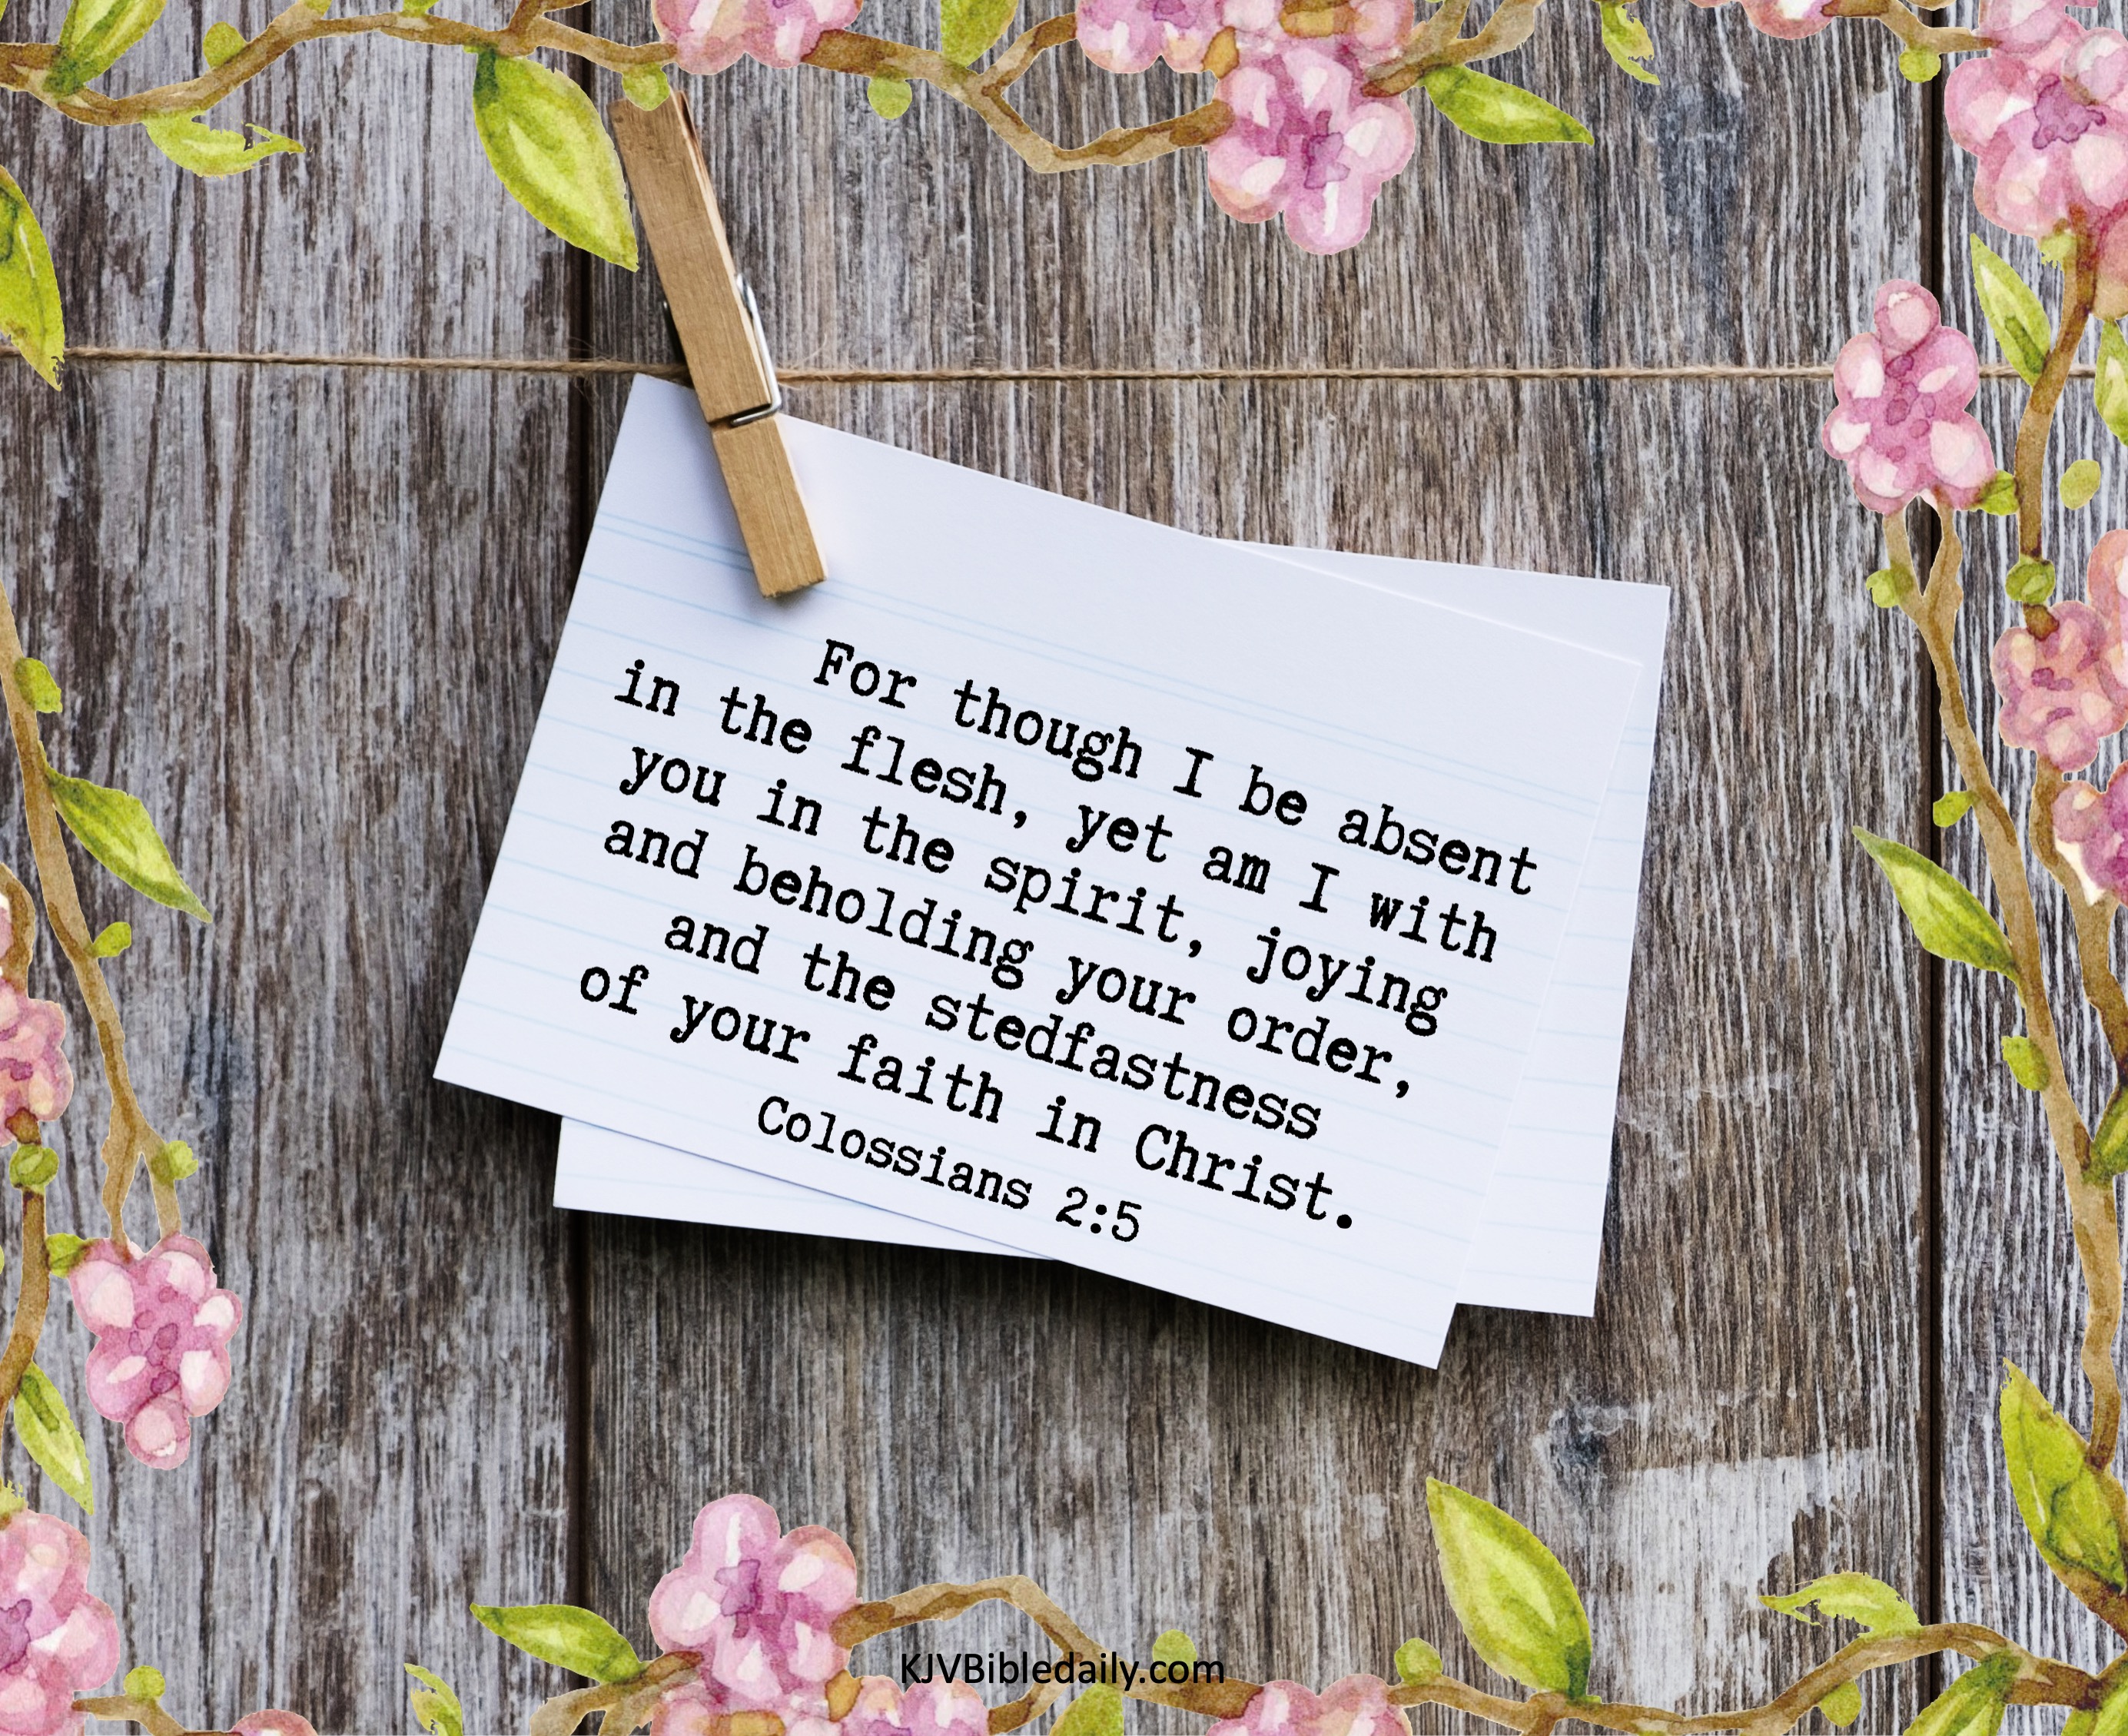 For though I be absent
in the flesh, yet am I with
you in the spirit, joying
and beholding your order,
and the stedfastness
of your faith in Christ.
Colossians 2:5
KJVBibledaily.com